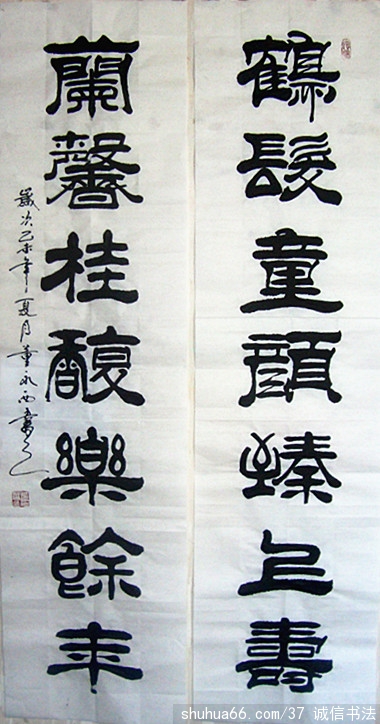 鶴髮童顏臻上壽
蘭馨桂馥樂餘年
歲次乙未年夏月董永西書之
shuhua66.com/37 诚信书法